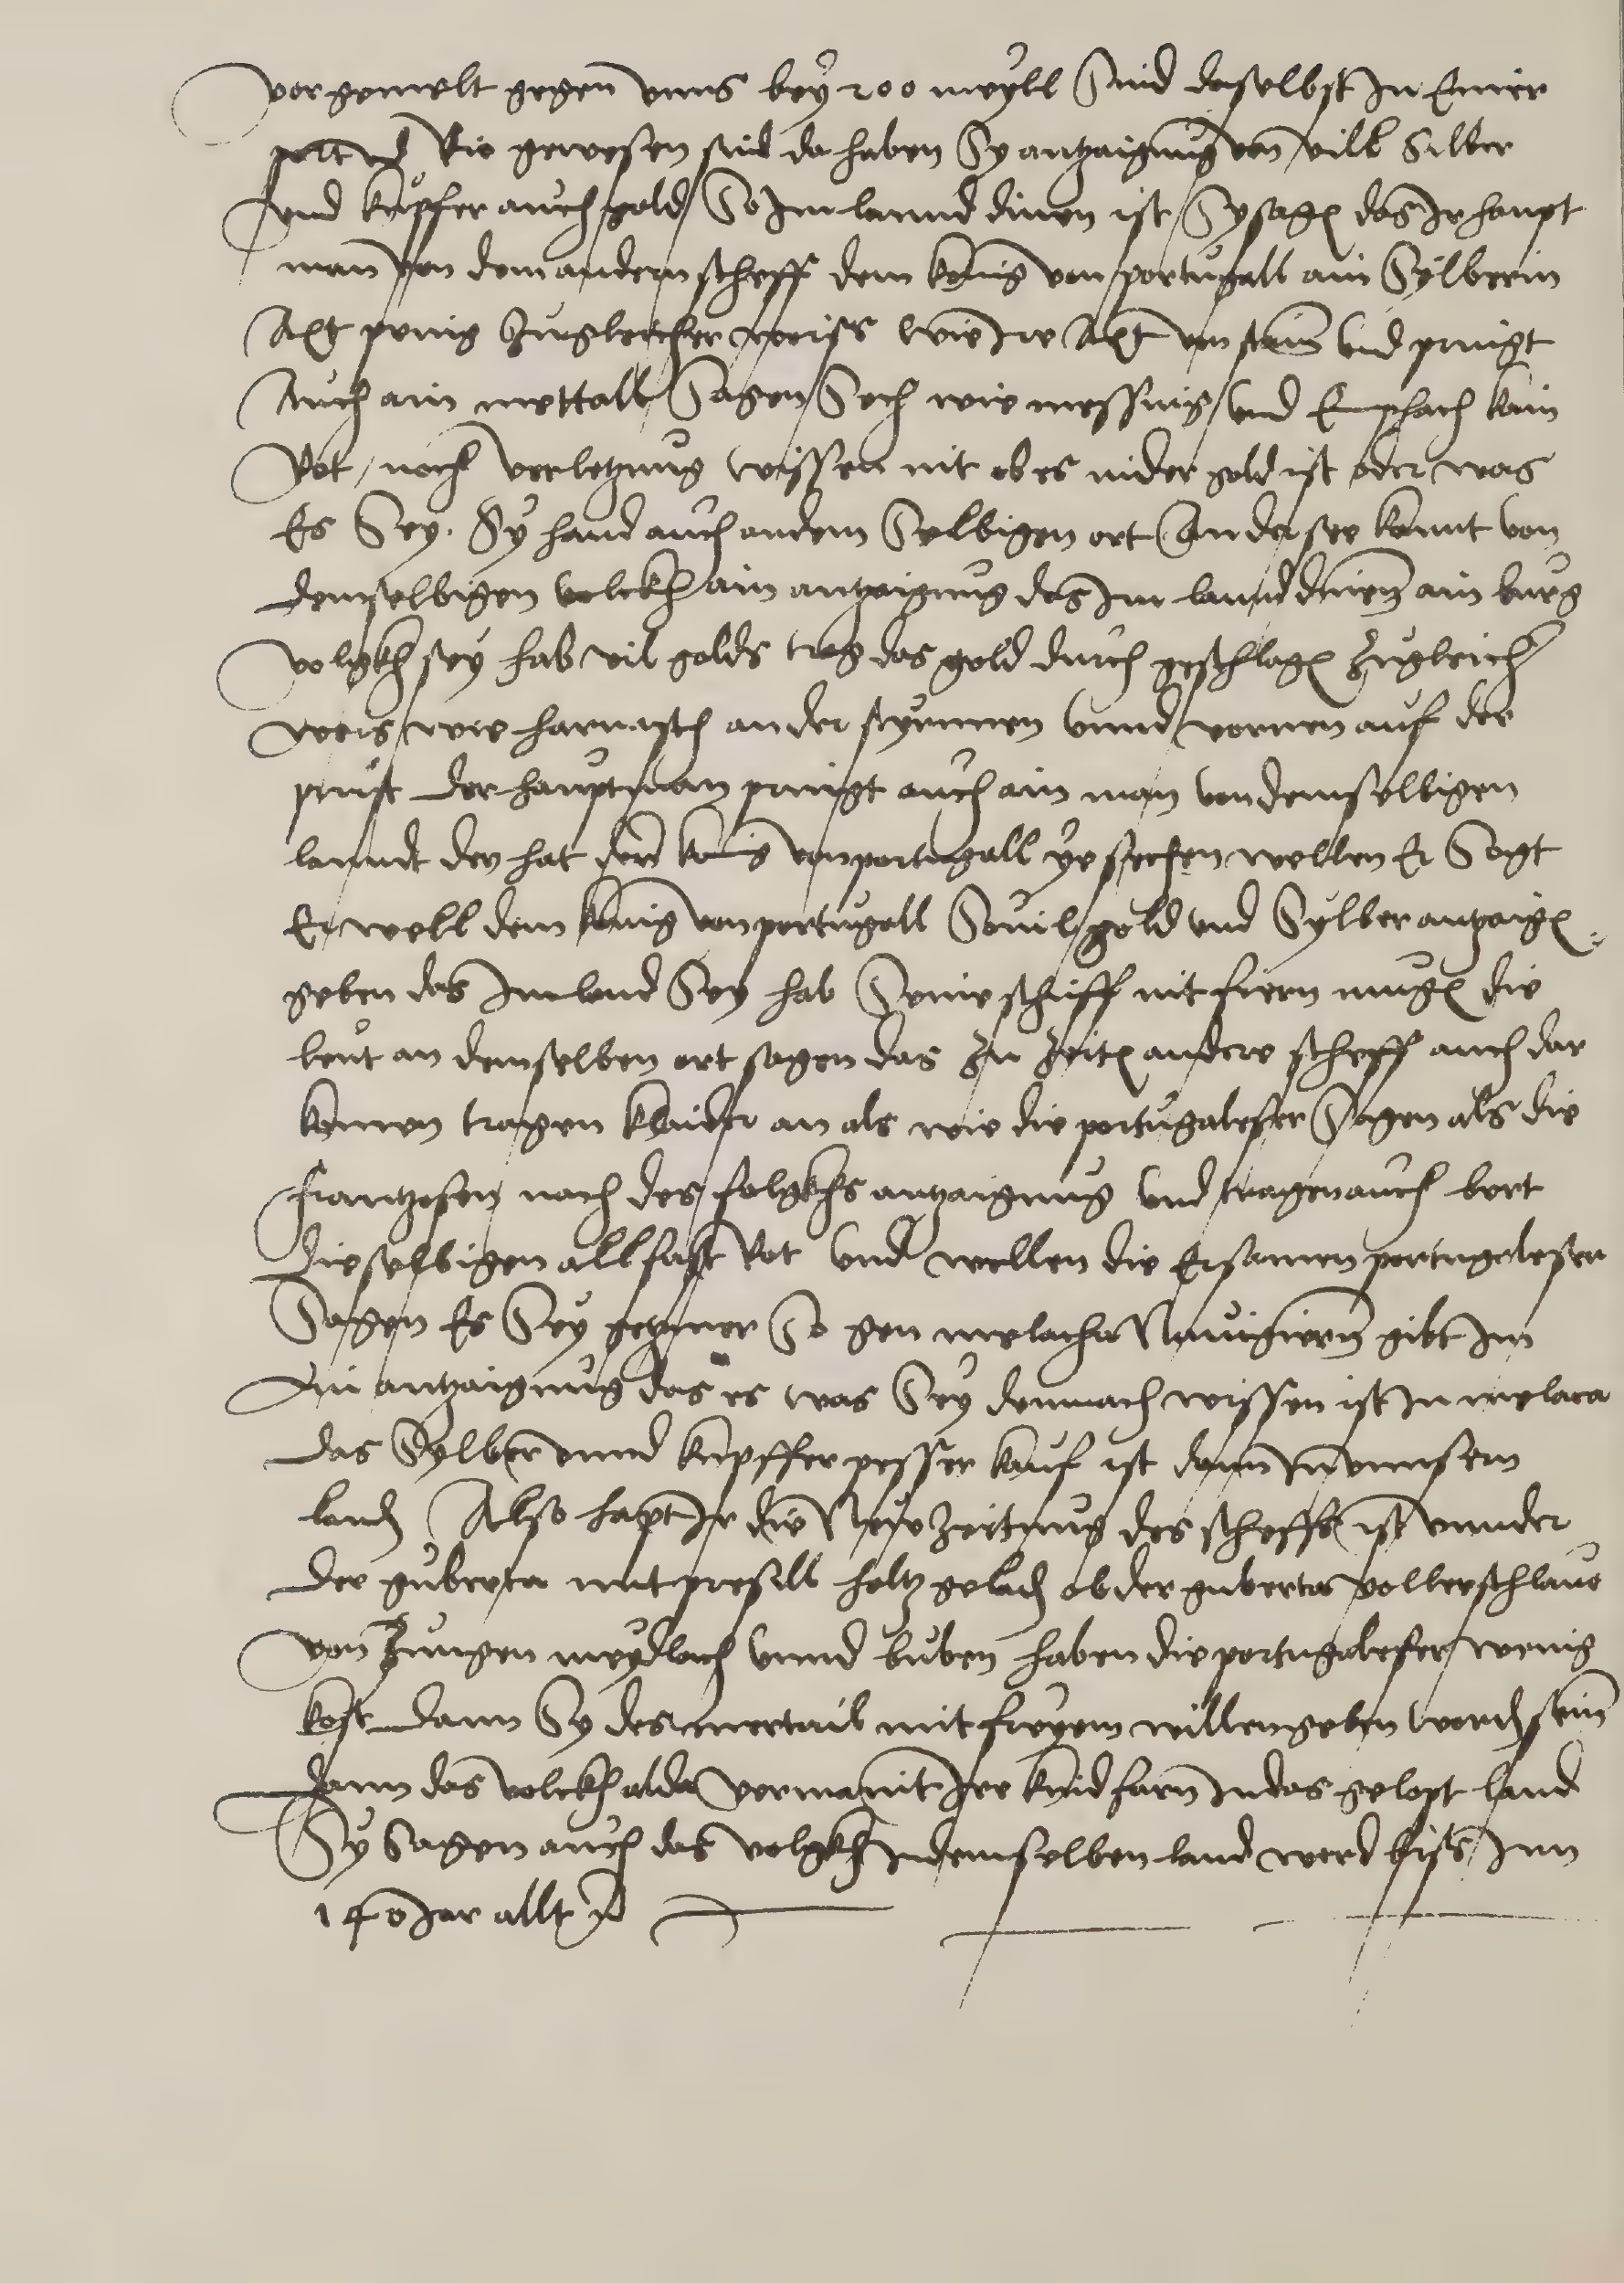 vorgemelt gegen unns bey 200 meyll Sind daselbst In Einer
port und Rio gewesen sind da haben Sy antzaigung von vill Silber
und kupfer auch gold So Im lannd dinen ist Sy sagen das Ir haupt
man von dem andern scheff dem konig von portugall ain Sylberin
Axt pring zugleicher weiss wie Ire Axt von stain und pringt
Auch ain mettall Sagen Sech wie messing und Emphach kain
Rot noch verletzung wissen nit ob es nider gold ist oder was
Es Sey. Sy hand auch an dem Selbigen ort An der see kannt von
demselbigen volckh ain antzaigung das Im lannd dinen ain burg
volgkh sey hab vil golds trag das gold durch geschlagen zugleicher
weis wie harnasch an der styrnnen unnd vornen auf der
prust der hauptman pringt auch ain man von demselbigen
lanndt der hat den konig von portugall ye sechen wellen Er Sagt
Er well dem konig von portugall Souil gold und Sylber antzaigen
geben das Im land Sey hab Seine schiff nit fieren mugen die
leut an demselben ort sagen das zu zeiten andere scheff auch dar
komen tragen klaider an als wie die portugaleser Sagen als die
Frantzosen nach des folgkhs antzaigung und tragen auch bert
die selbigen all fast Rot und wellen die Ersamen portugaleser
Sagen Es Sey So gen melacha Nauigieren gibt Im
Ain antzaigung das es was Sey demnach wissen ist In melaca
das Sylber unnd kupffer pesser kauf ist dann In unnsern
landen Also hapt Ir die Neue Zeitung des scheffs ist unnder
der guberta mit presill holtz geladen ob der guberta voller schlauo
von Jungen meydlach unnd buben haben die portugaleser wenig
kost dann Sy des merertail mit freyem willen geben worden sein
dann das volckh alda vermaint Ire kind farn In das gelopt land
Sy Sagen auch das volgkh In demselben land werd biss Inn
140 Jar allt